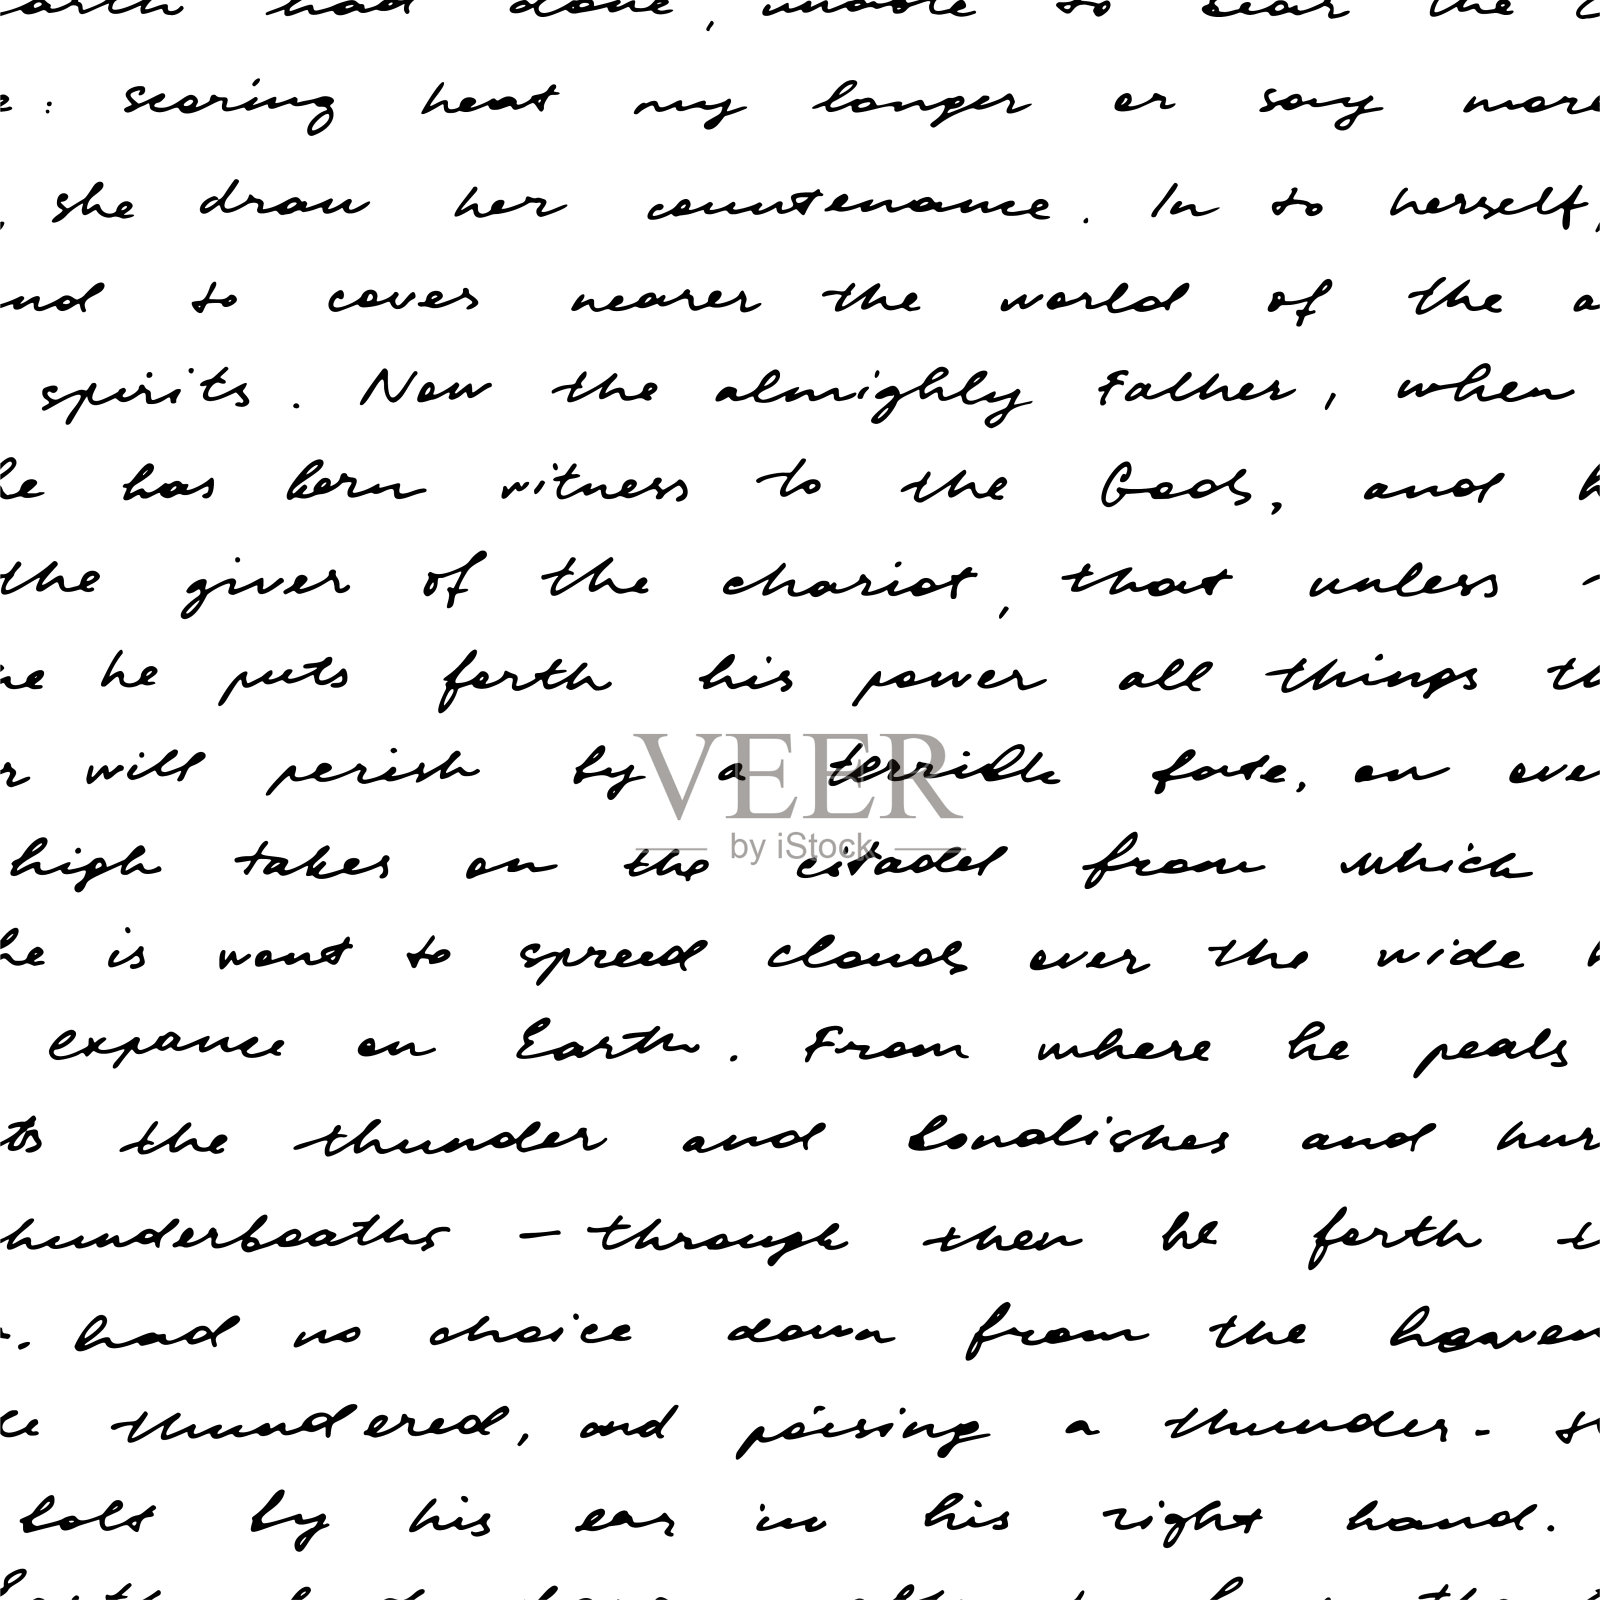 earth had done, unable to bear the
: scoring heat my longer or say more
, she draw her countenance. In to herself,
and to coves nearer the world of the
spirits. Now the almighty Father, when
he has born witness to the Gods, and
the giver of the chariot, that unless
he puts forth his power all things
will perish by a terrible fate, on
high takes on the citadel from which
he is wont to spreed clouds over the wide
expance on Earth. From where he peals
the thunder and bondishes and
hunderboaths – through then he forth
had no choice down from the heaven
thundered, and poising a thunder-
bolt by his ear in his right hand.
VEER
by iStock